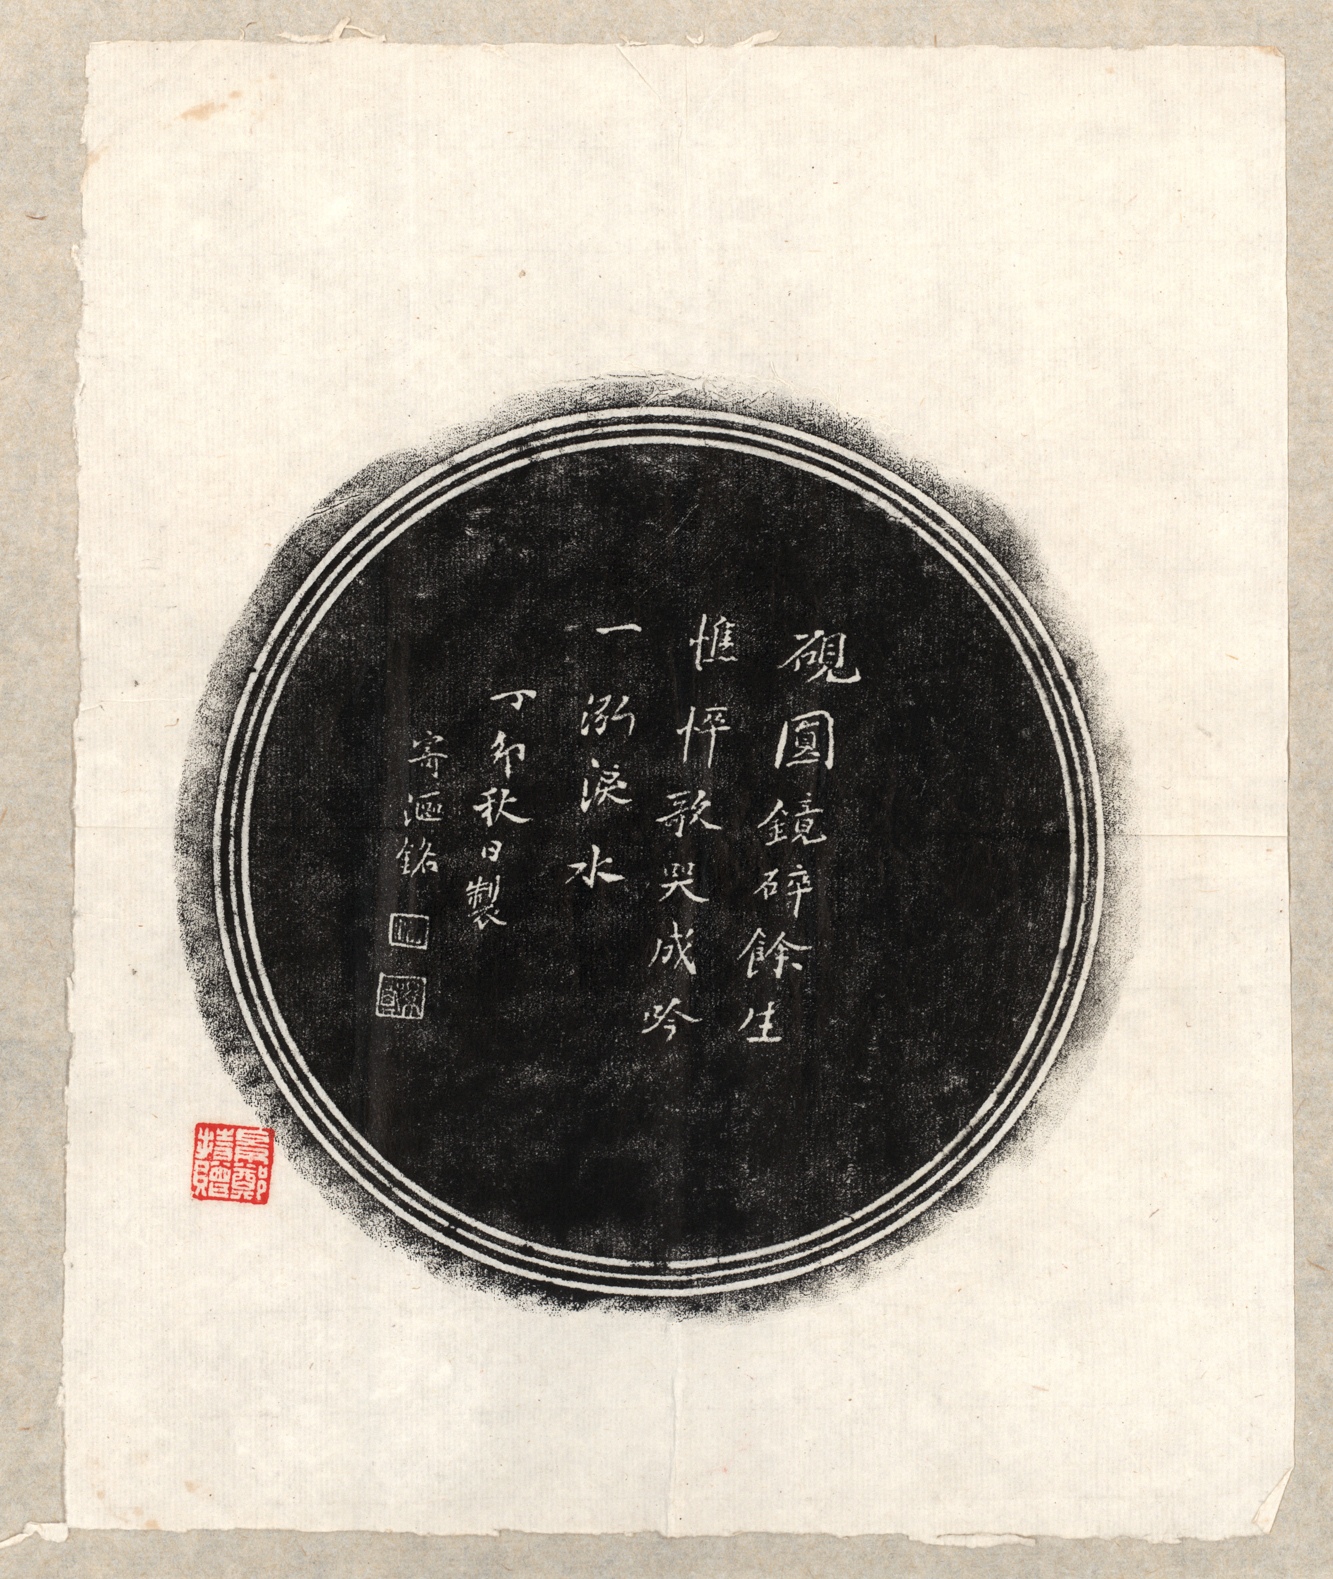 硯圓鏡碎餘生
憔悴歌哭成吟
一泓淚水
丁卯秋日製
寄漚銘
鄭
持贈